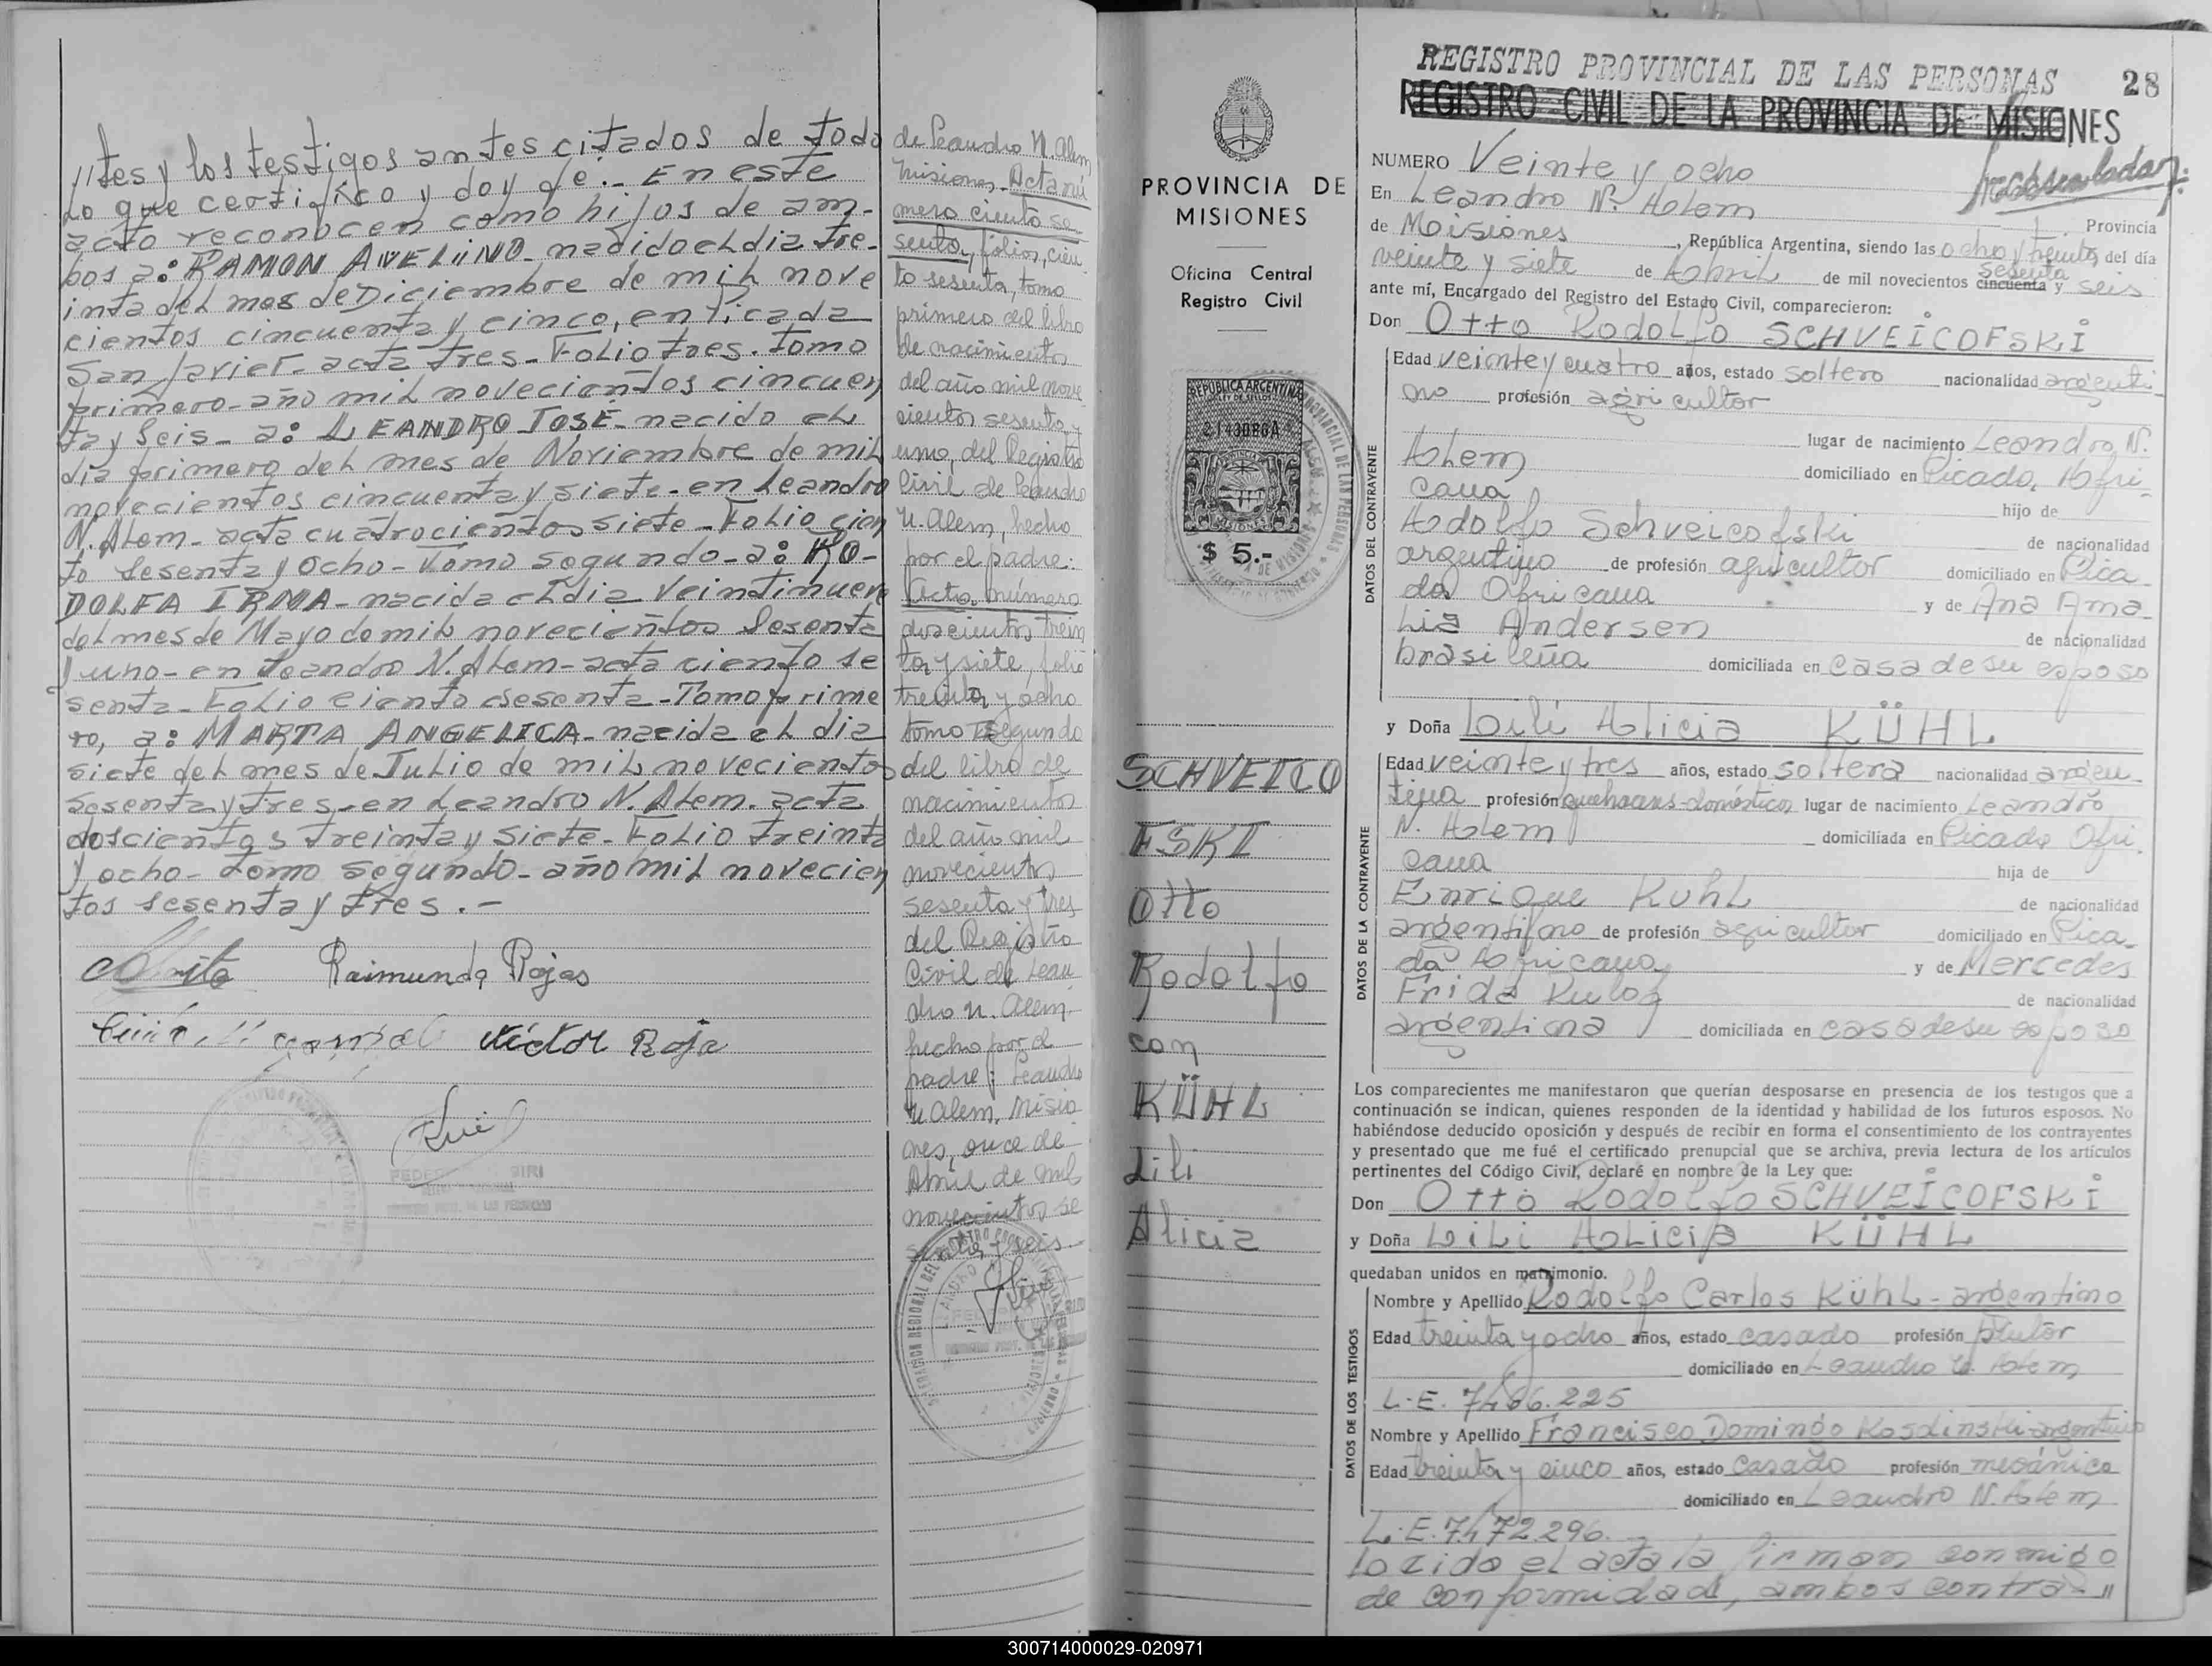 //tes y los testigos antes citados de todo
Lo que certifico y doy fe.- En este
acto reconocen como hijos de am-
bos a: RAMON AVELiiNO- nacido el dia tre-
inta del mes de Diciembre de mil nove
cientos cincuenta y cinco, en Picada
San Javier- acta tres- Folio tres. Tomo
primero- año mil novecientos cincuen
ta y seis- a: LEANDRO JOSÉ- nacido el
día primero del mes de Noviembre de mil
novecientos cincuenta y siete- en Leandro
N. Alem- acta cuatrocientos siete- Folio cien
to sesenta y ocho- Tomo segundo- a: RO-
DOLFA IRMA- nacida el dia veintinueve
del mes de Mayo de mil novecientos sesenta
y uno- en Leandro N. Alem- acta ciento se
senta- Folio ciento sesenta- Tomo prime
ro, a: MARTA ANGELICA- nacida el dia
siete del mes de Julio de mil novecientos
sesenta y tres- en Leandro N. Alem. acta
doscientos treinta y siete- Folio treinta
y ocho- tomo segundo- año mil novecien
tos sesenta y tres.-
Raimunda Rojas
Víctor Roja
de Leandro N. Alem,
Misiones- Acta nú
mero ciento se-
senta, folios, cien
to sesenta, tomo
primero del libro
de nacimientos
del año mil nove
cientos sesenta y
uno, del Registro
Civil de Leandro
N. Alem, hecho
por el padre:
Acta número
doscientos trein
ta y siete, folio
treinta y ocho
tomo segundo
del libro de
nacimientos
del año mil
novecientos
sesenta y tres
del Registro
Civil de Lean
dro N. Alem-
hecho por el
padre; Leandro
N. Alem, Misio
nes, once de
Abril de mil
novecientos se
senta y seis-
PROVINCIA DE
MISIONES
Oficina Central
Registro Civil
REPUBLICA ARGENTINA
LEY DE SELLOS
$ 5.-
SCHVEICO
FSKI
Otto
Rodolfo
con
KÜHL
Lili
Alicia
REGISTRO PROVINCIAL DE LAS PERSONAS 28
REGISTRO CIVIL DE LA PROVINCIA DE MISIONES
NUMERO Veinte y ocho
En Leandro N. Alem Provincia
de Misiones, República Argentina, siendo las ocho y treinta del día
veinte y siete de Abril de mil novecientos cincuenta sesenta y seis
ante mí, Encargado del Registro del Estado Civil, comparecieron:
Don Otto Rodolfo SCHVEICOFSKI
DATOS DEL CONTRAYENTE
Edad veinte y cuatro años, estado soltero nacionalidad argenti-
no profesión agricultor
lugar de nacimiento Leandro N.
Alem domiciliado en Picada Afri-
cana hijo de
Adolfo Schveicofski de nacionalidad
argentino de profesión agricultor domiciliado en Pica-
da Africana y de Ana Ama-
lia Andersen de nacionalidad
brasileña domiciliada en casa de su esposo
y Doña Lili Alicia KÜHL
DATOS DE LA CONTRAYENTE
Edad veinte y tres años, estado soltera nacionalidad argen-
tina profesión quehaceres-domésticos lugar de nacimiento Leandro
N. Alem domiciliada en Picada Afri-
cana hija de
Enrique Kuhl de nacionalidad
argentino de profesión agricultor domiciliado en Pica-
da Africana y de Mercedes
Frida de nacionalidad
argentina domiciliada en casa de su esposo
Los comparecientes me manifestaron que querían desposarse en presencia de los testigos que a
continuación se indican, quienes responden de la identidad y habilidad de los futuros esposos. No
habiéndose deducido oposición y después de recibir en forma el consentimiento de los contrayentes
y presentado que me fué el certificado prenupcial que se archiva, previa lectura de los artículos
pertinentes del Código Civil, declaré en nombre de la Ley que:
Don Otto Rodolfo SCHVEICOFSKI
y Doña LiLi ALiCiA KÜHL
quedaban unidos en matrimonio.
DATOS DE LOS TESTIGOS
Nombre y Apellido Rodolfo Carlos Kühl- argentino
Edad treinta y ocho años, estado casado profesión pintor
domiciliado en Leandro N. Alem
L.E. 7.486.225
Nombre y Apellido Francisco Domingo Kosdinski argentino
Edad treinta y cinco años, estado casado profesión mecánico
domiciliado en Leandro N. Alem
L.E. 7.472.296.
Leido el acta la firman conmigo
de conformidad, ambos contra- //
300714000029-020971